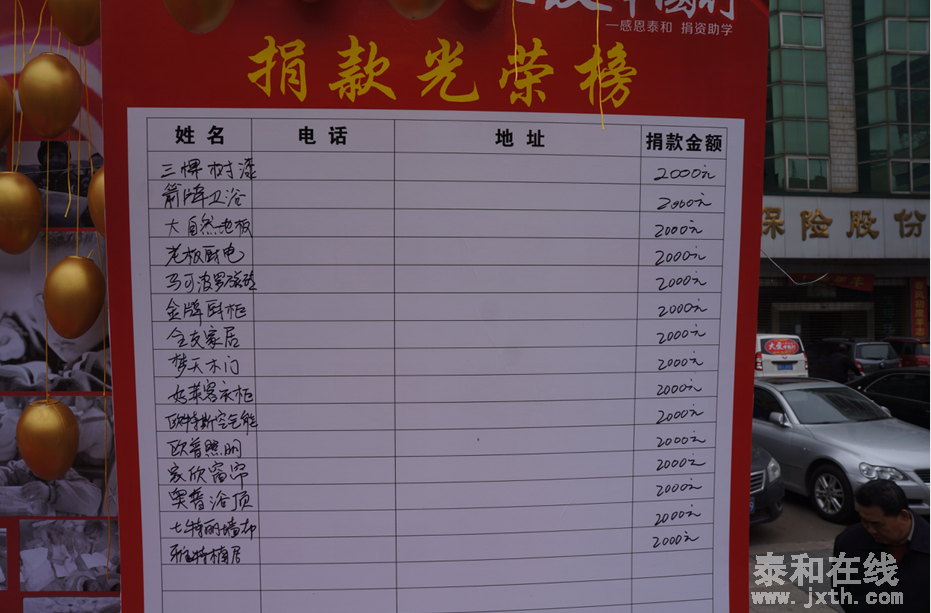 —感恩泰和 捐资助学
捐款光荣榜
姓名 电话 地址 捐款金额
三棵树漆 2000元
箭牌卫浴 2000元
大自然地板 2000元
老板厨电 2000元
马可波罗磁砖 2000元
金牌厨柜 2000元
全友家居 2000元
梦天木门 2000元
好莱客衣柜 2000元
欧特斯空气能 2000元
欧普照明 2000元
家欣窗帘 2000元
奥普浴顶 2000元
七特丽墙布 2000元
雅特楠居 2000元
保险股份
泰和在线
www.jxth.com